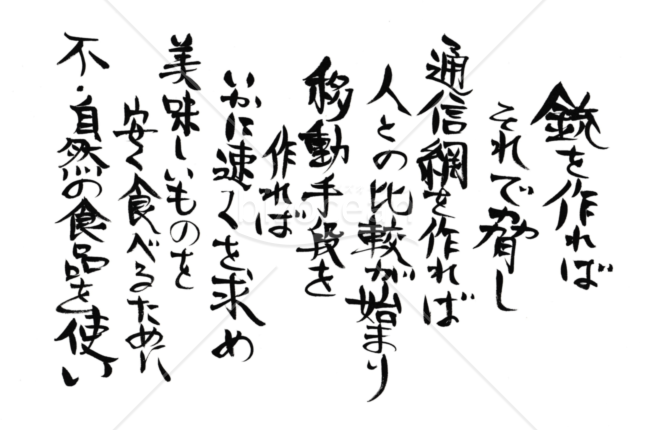 銃を作れば
それで脅し
通信網を作れば
人との比較が始まり
移動手段を
作れば
いかに速くを求め
美味しいものを
安く食べるために
不・自然の食品を使い